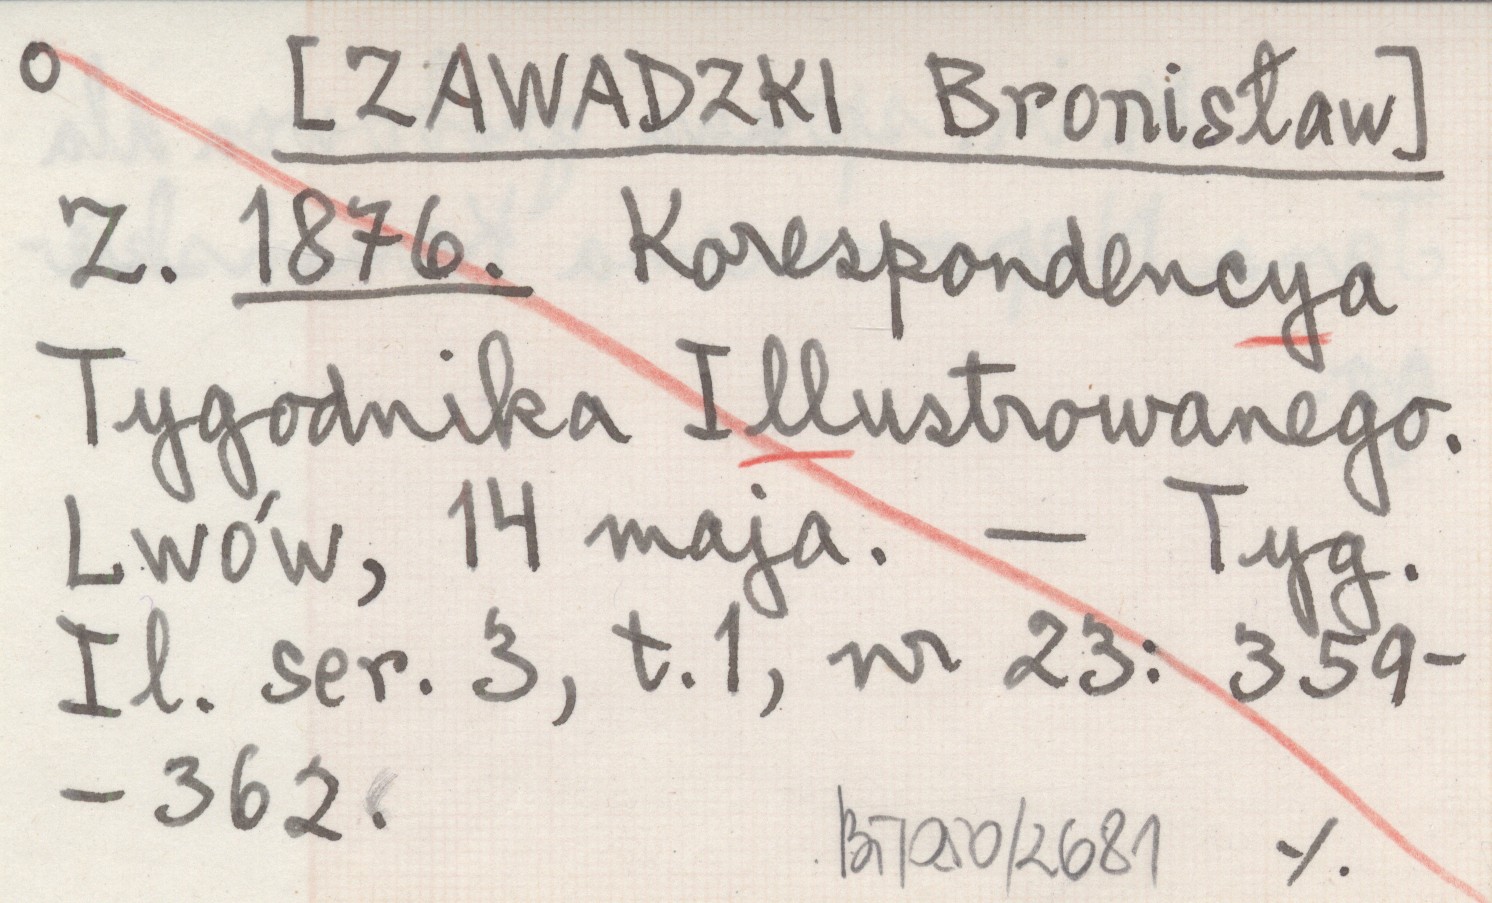 o [ZAWADZKI Bronisław]
Z. 1876. Korespondencya
Tygodnika Illustrowanego.
Lwów, 14 maja. — Tyg.
Il. ser. 3, t.1, nr 23: 359-
- 362.
/2681 ·/.